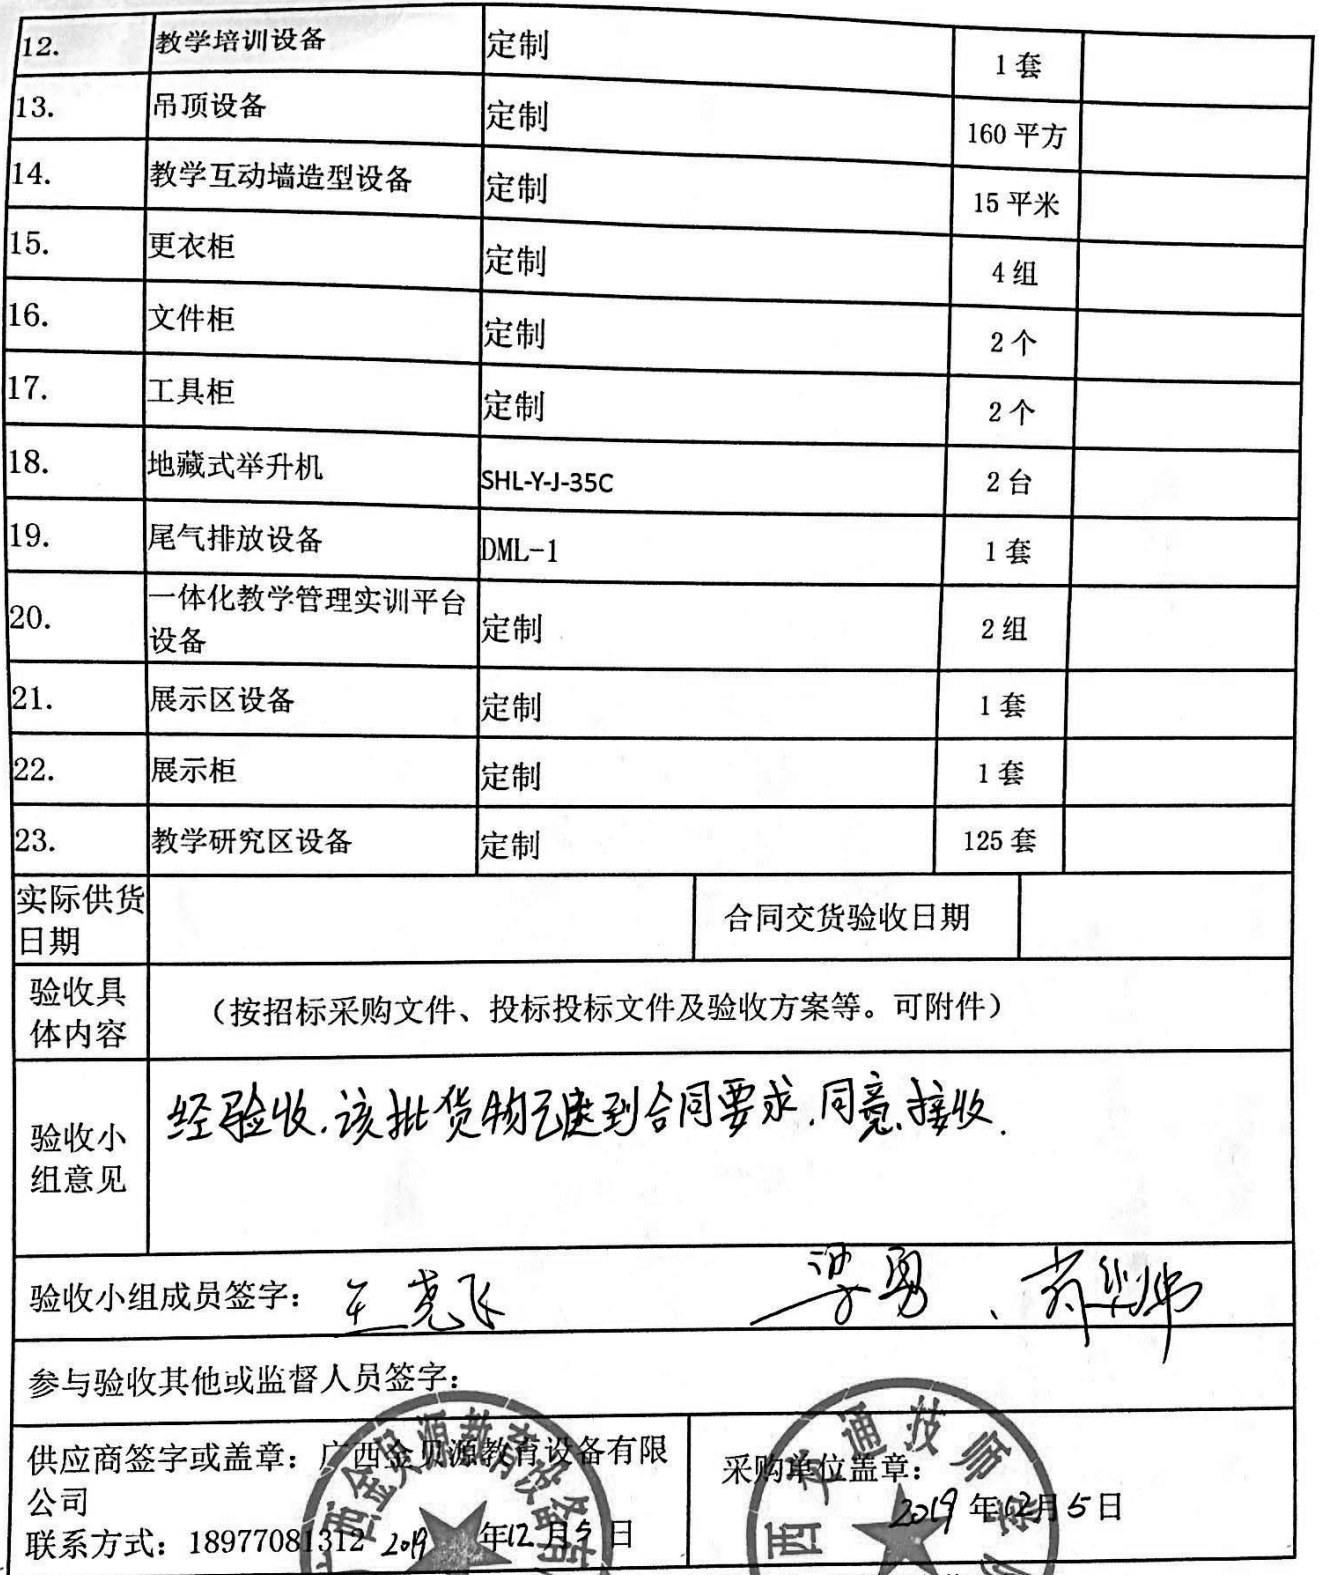 12. 教学培训设备 定制 1 套
13. 吊顶设备 定制 160 平方
14. 教学互动墙造型设备 定制 15 平米
15. 更衣柜 定制 4 组
16. 文件柜 定制 2 个
17. 工具柜 定制 2 个
18. 地藏式举升机 SHL-Y-J-35C 2 台
19. 尾气排放设备 DML-1 1 套
20. 一体化教学管理实训平台
设备 定制 2 组
21. 展示区设备 定制 1 套
22. 展示柜 定制 1 套
23. 教学研究区设备 定制 125 套
实际供货
日期
合同交货验收日期
验收具
体内容
（按招标采购文件、投标投标文件及验收方案等。可附件）
验收小
组意见
经验收,该批货物已达到合同要求,同意接收.
验收小组成员签字： 王尧飞 梁勇
参与验收其他或监督人员签字：
供应商签字或盖章：广西金贝源教育设备有限
公司
联系方式：18977081312 2019 年12月5日
采购单位盖章：
2019 年12月5日
西金贝源教育设备有
西交通技师学